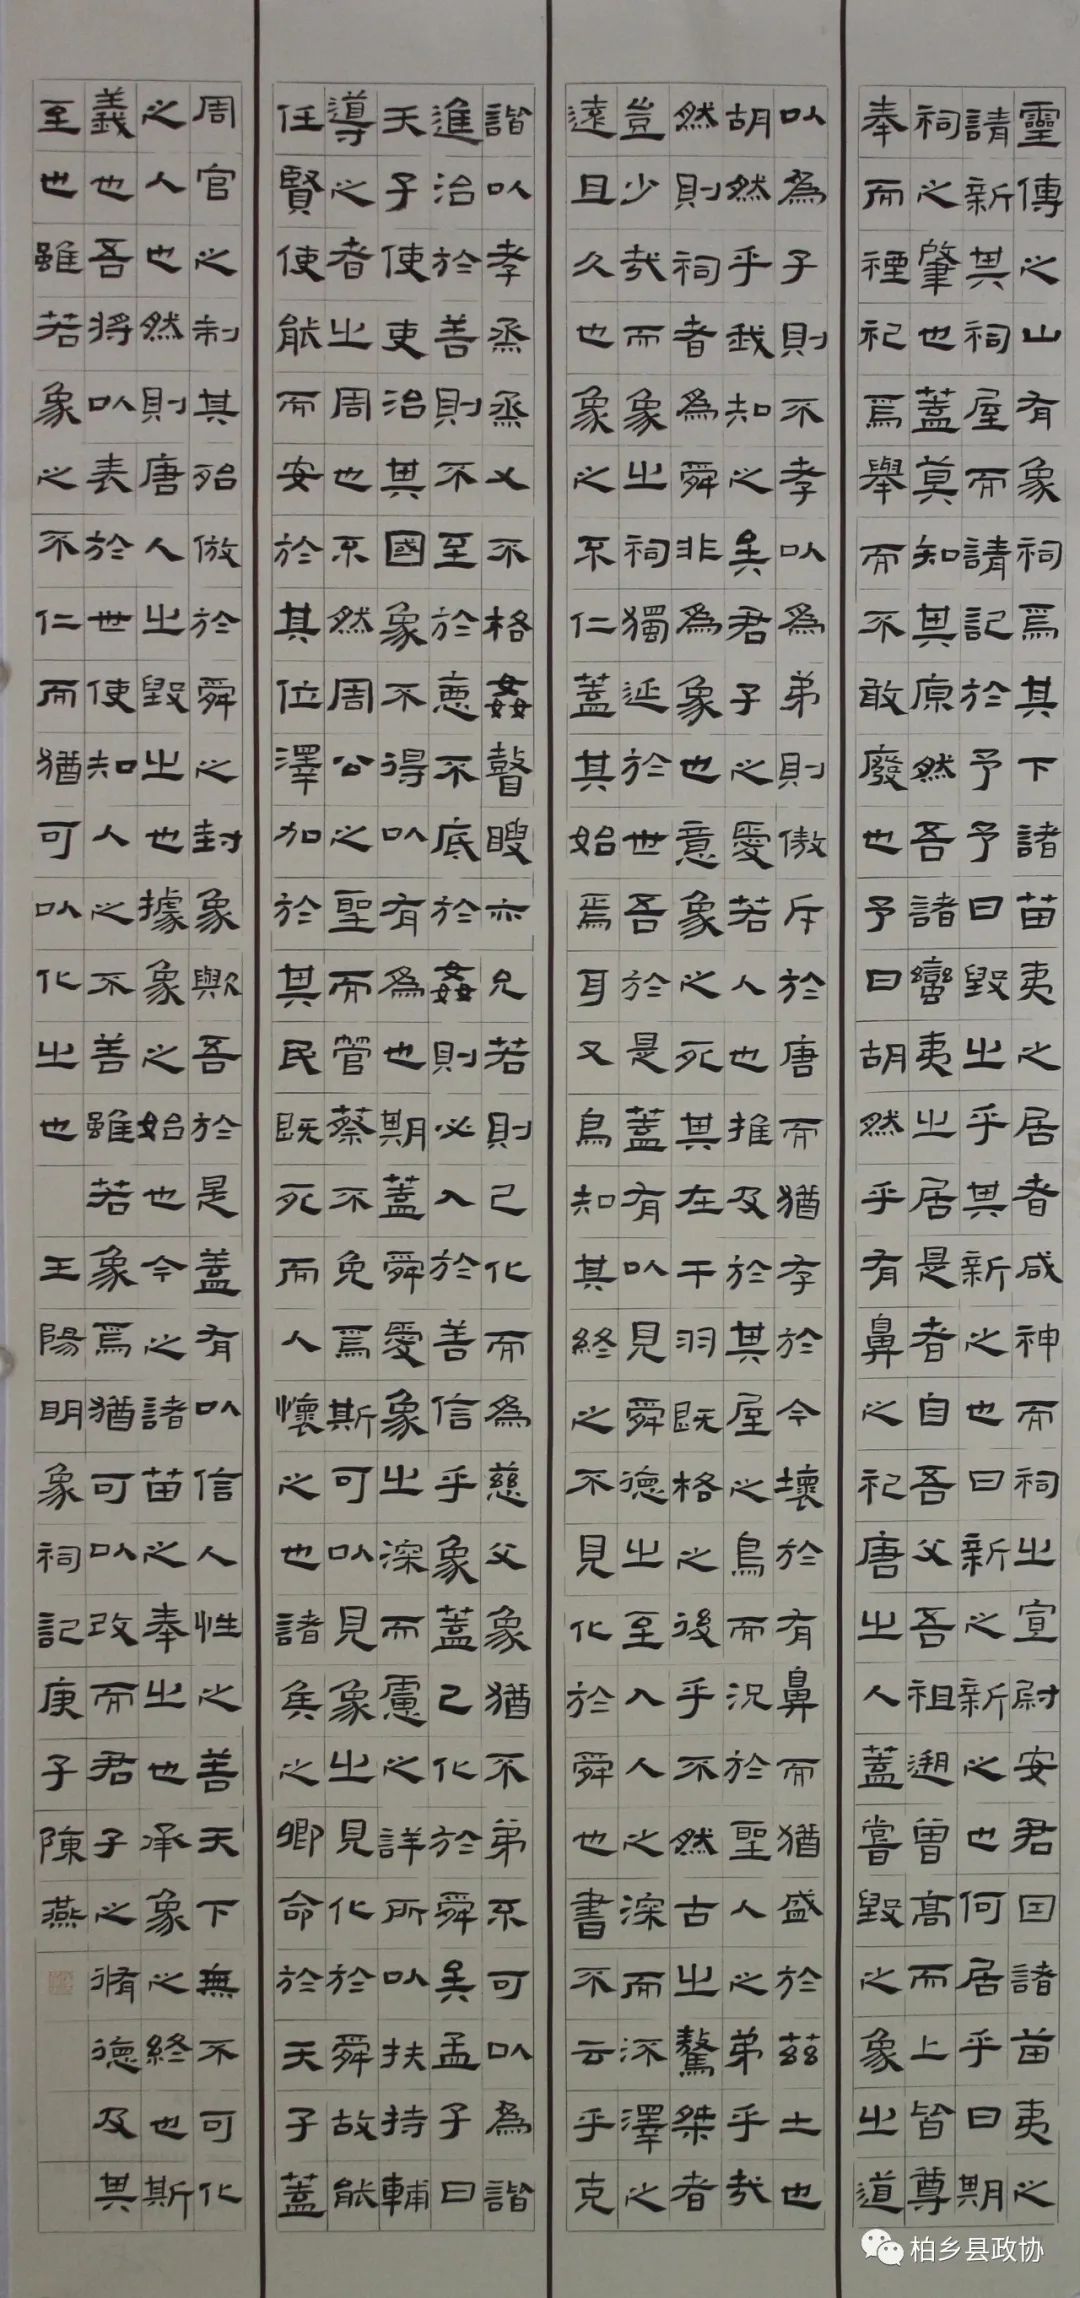 靈傳之山有象祠焉其下諸苗夷之居者咸神而祠之宣尉安君囙諸苗夷之
請新其祠屋而請記於予予曰毀之乎其新之也曰新之新之也何居乎曰期
祠之肇也蓋莫知其原然吾諸蠻夷之居是者自吾父吾祖遡曾高而上皆尊
奉而禋祀焉舉而不敢廢也予曰胡然乎有鼻之祀唐之人蓋嘗毀之象之道
以為子則不孝以為弟則傲斥於唐而猶存於今壞於有鼻而猶盛於茲土也
胡然乎我知之矣君子之愛若人也推及於其屋之烏而況於聖人之弟乎哉
然則祠者為舜非為象也意象之死其在干羽既格之後乎不然古之驁桀者
豈少哉而象之祠獨延於世吾於是蓋有以見舜德之至入人之深而流澤之
遠且久也象之不仁蓋其始焉耳又烏知其終之不見化於舜也書不云乎克
諧以孝烝烝乂不格姦瞽瞍亦允若則已化而為慈父象猶不弟不可以為諧
進治於善則不至於惡不底於姦則必入於善信乎象蓋已化於舜矣孟子曰
天子使吏治其國象不得以有為也期蓋舜愛象之深而慮之詳所以扶持輔
導之者之周也不然周公之聖而管蔡不免焉斯可以見象之見化於舜故能
任賢使能而安於其位澤加於其民既死而人懷之也諸侯之卿命於天子蓋
周官之制其殆倣於舜之封象歟吾於是蓋有以信人性之善天下無不可化
之人也然則唐人之毀之也據象之始也今之諸苗之奉之也承象之終也斯
義也吾將以表於世使知人之不善雖若象焉猶可以改而君子之脩德及其
至也雖若象之不仁而猶可以化之也 王陽明象祠記庚子陳燕
柏乡县政协